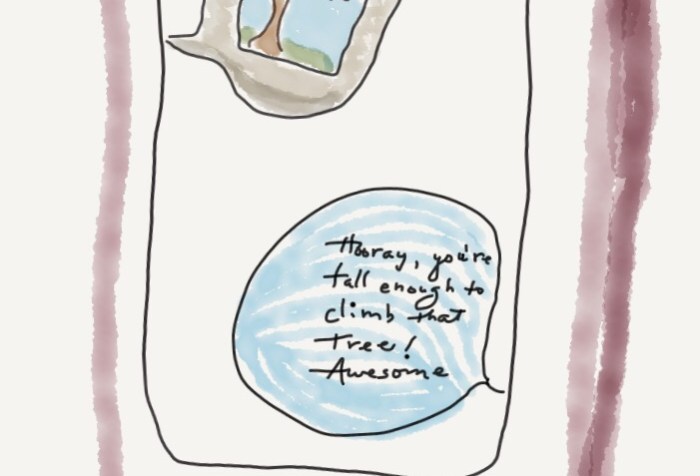 Hooray, you're
tall enough to
climb that
Tree!
Awesome